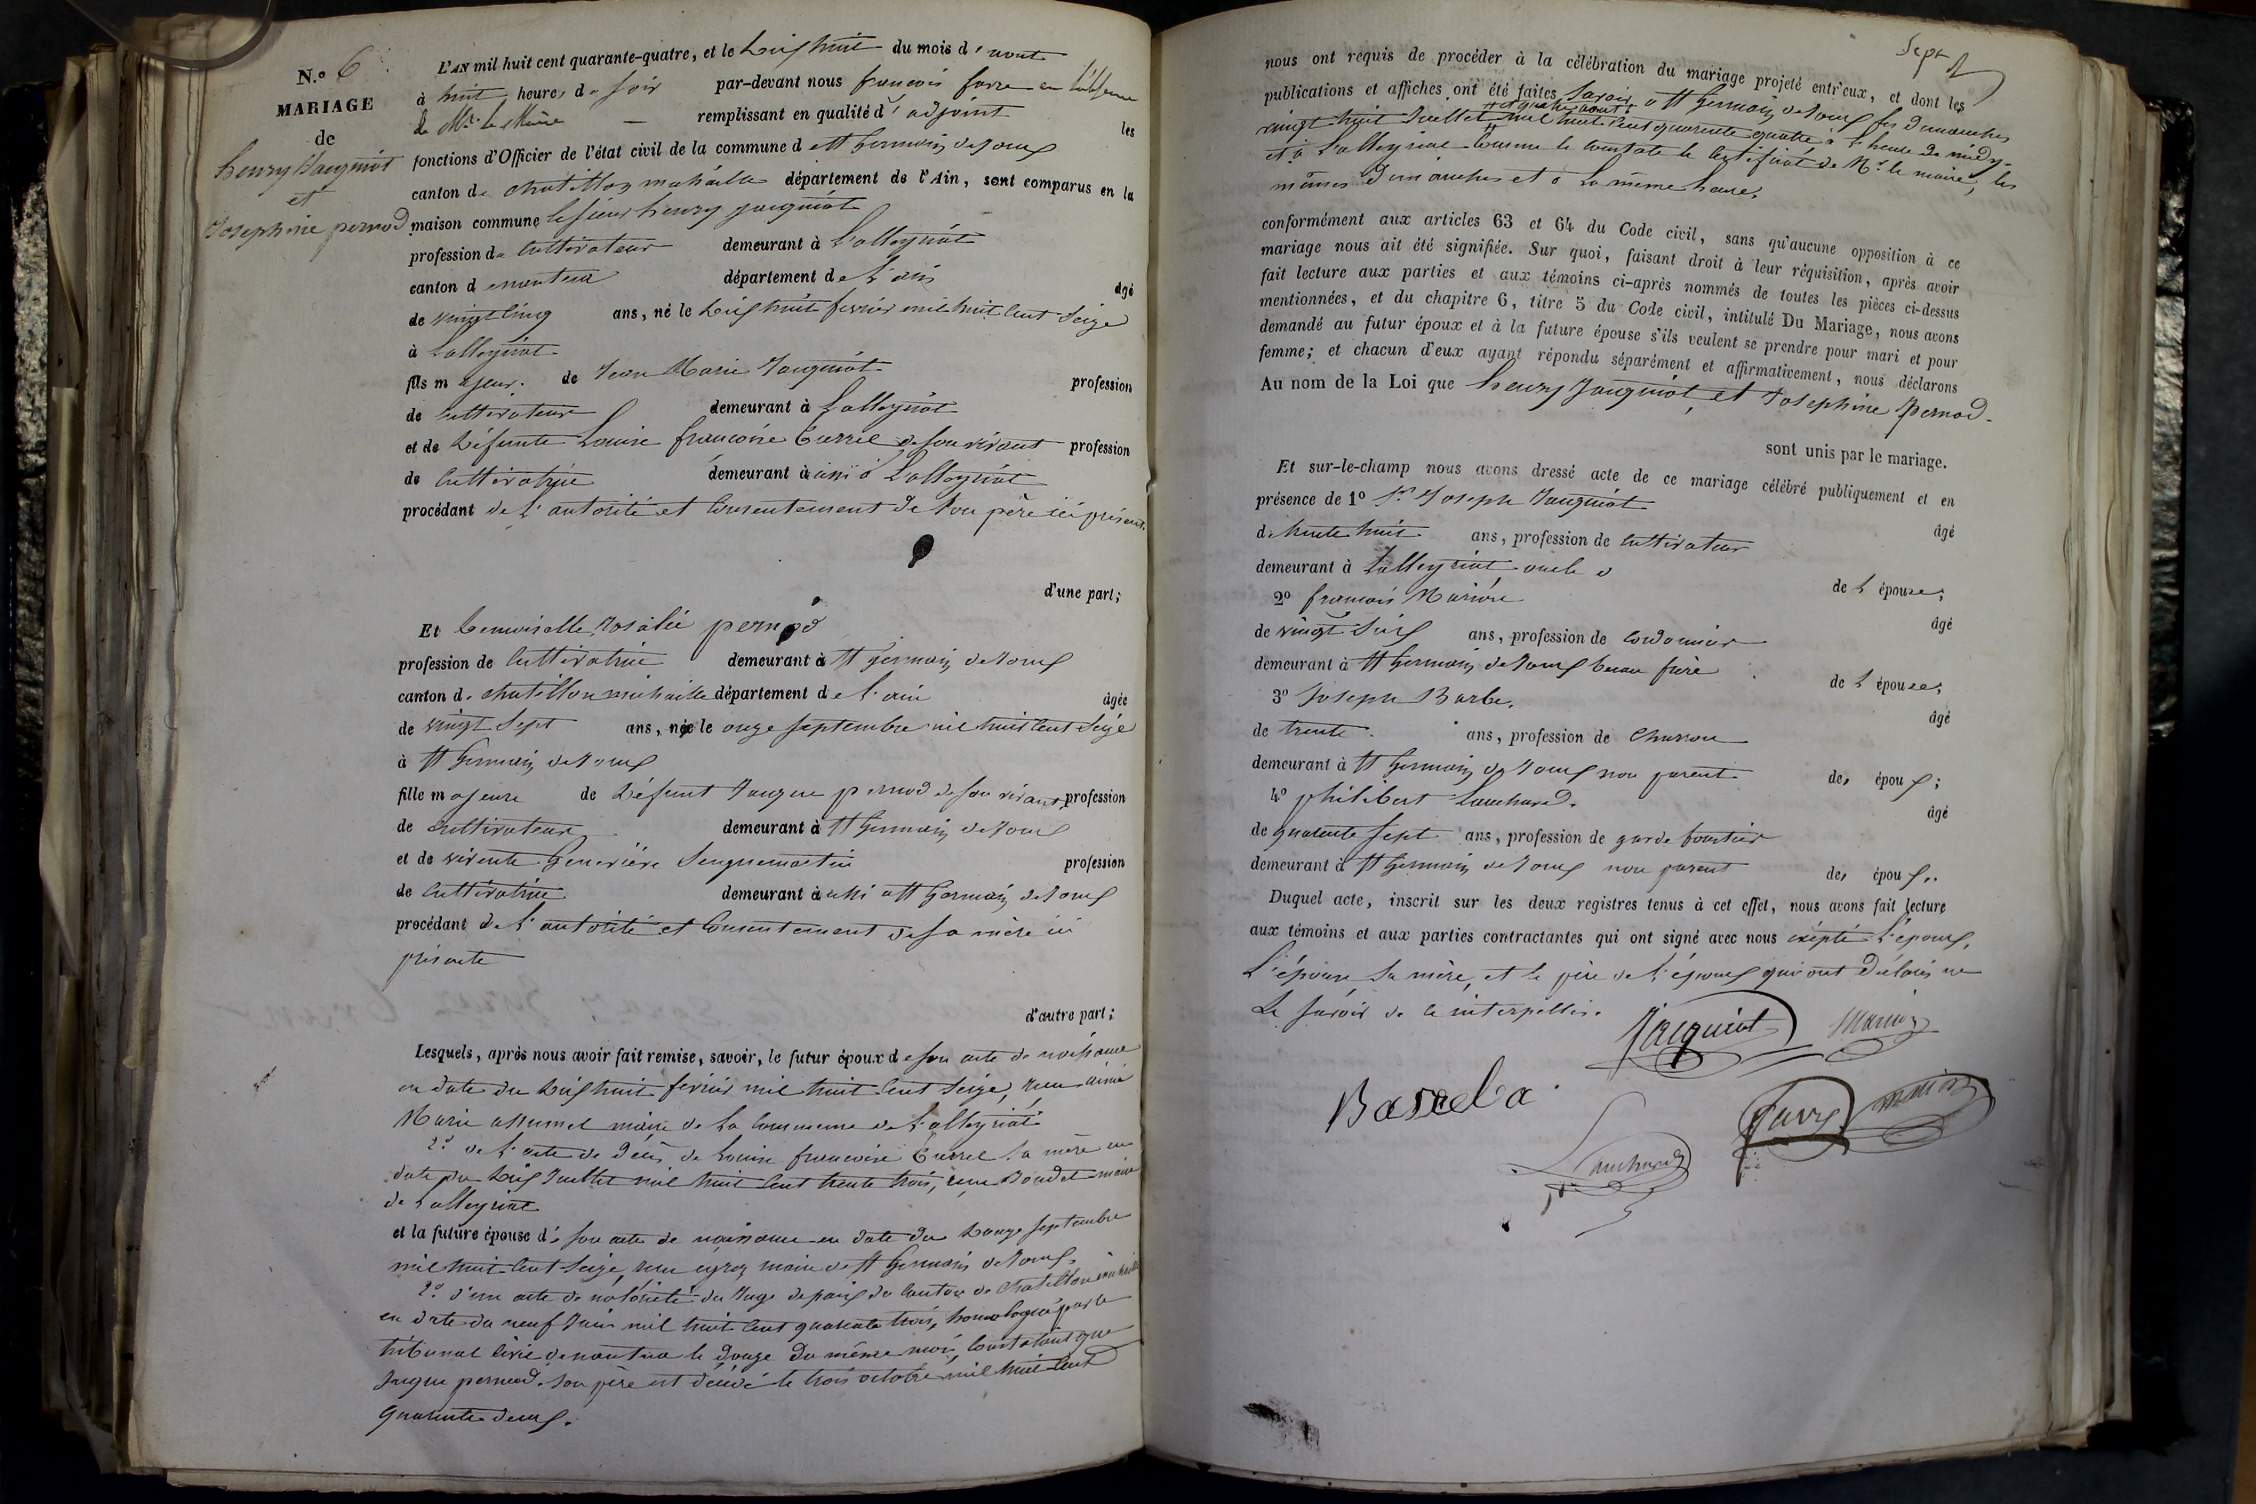 N.o 6
MARIAGE
de
henry Jacquiot
et
Josephine pernod
L'AN mil huit cent quarante-quatre, et le dix huit du mois d'aout
à huit heures du soir par-devant nous francois favre en l'absence
de Mr. le Maire remplissant en qualité d'adjoint les
fonctions d'Officier de l'état civil de la commune de St Germain de Joux
canton de chatillon michaille département de l'Ain, sont comparus en la
maison commune le sieur henry jacquiot
profession de cultivateur demeurant à Lalleyriat
canton de nantua département de l'ain âgé
de vingt ans, né le dix huit fevrier mil huit cent seize
à Lalleyriat
fils majeur de Jean Marie Jacquiot profession
de cultivateur demeurant à Lalleyriat
et de défunte Louise francoise de son vivant profession
de cultivatrice demeurant à aussi à Lalleyriat
procédant de l'autorité et consentement de son père ici présent
d'une part;
Et Demoiselle rosalie pernod
profession de cultivatrice demeurant à St Germain de Joux
canton de chatillon michaille département de l'ain âgée
de vingt sept ans, née le onze septembre mil huit cent seize
à St Germain de Joux
fille majeure de défunt Jacque pernod de son vivant profession
de cultivateur demeurant à St Germain de Joux
et de vivante Genevieve Seignemartin profession
de cultivatrice demeurant à aussi à St Germain de Joux
procédant de l'autorité et consentement de sa mère ici
présente
d'autre part;
Lesquels, après nous avoir fait remise, savoir, le futur époux de son acte de naissance
en date du dix huit fevrier mil huit cent seize, reçu
Marie maire de la commune de Lalleyriat
2o. de l'acte de décès de Louise francoise sa mère en
date du dix Juillet mil huit cent trente trois, reçu maire
de Lalleyriat
et la future épouse de son acte de naissance en date du septembre
mil huit cent seize, reçu maire de St Germain de Joux,
2o. d'un acte de notoriété du Juge de paix du canton de chatillon michaille
en date du neuf Juin mil huit cent quarante trois, homologué par le
tribunal civil de nantua le douze du même mois, constatant que
Jacque pernod son père est décédé le trois octobre mil huit cent
quarante deux.
Sept
nous ont requis de procéder à la célébration du mariage projeté entr'eux, et dont les
publications et affiches ont été faites savoir à St Germain de Joux les dimanches
et quatre aout
vingt huit Juillet mil huit cent quarante quatre à l'heure de midy
et à Lalleyriat comme le constate le certificat de Mr. le maire, les
mêmes dimanches et à la même heure,
conformément aux articles 63 et 64 du Code civil, sans qu'aucune opposition à ce
mariage nous ait été signifiée. Sur quoi, faisant droit à leur réquisition, après avoir
fait lecture aux parties et aux témoins ci-après nommés de toutes les pièces ci-dessus
mentionnées, et du chapitre 6, titre 5 du Code civil, intitulé Du Mariage, nous avons
demandé au futur époux et à la future épouse s'ils veulent se prendre pour mari et pour
femme; et chacun d'eux ayant répondu séparément et affirmativement, nous déclarons
Au nom de la Loi que henry Jacquiot et Josephine pernod
sont unis par le mariage.
Et sur-le-champ nous avons dressé acte de ce mariage célébré publiquement et en
présence de 1o Sr. Joseph Jacquiot âgé
de trente huit ans, profession de cultivateur
demeurant à Lalleyriat oncle de l'épouse;
2o francois âgé
de vingt six ans, profession de cordonnier
demeurant à St Germain de Joux beau frère de l'épouse;
3o Joseph Barbe, âgé
de trente ans, profession de charron
demeurant à St Germain de Joux non parent des époux;
4o philibert Lauchard. âgé
de quarante sept ans, profession de garde forestier
demeurant à St Germain de Joux non parent des époux.
Duquel acte, inscrit sur les deux registres tenus à cet effet, nous avons fait lecture
aux témoins et aux parties contractantes qui ont signé avec nous excepté l'époux,
L'épouse sa mère, et le père de l'époux qui ont déclaré ne
le savoir de ce interpellés.
Jacquiot
favre